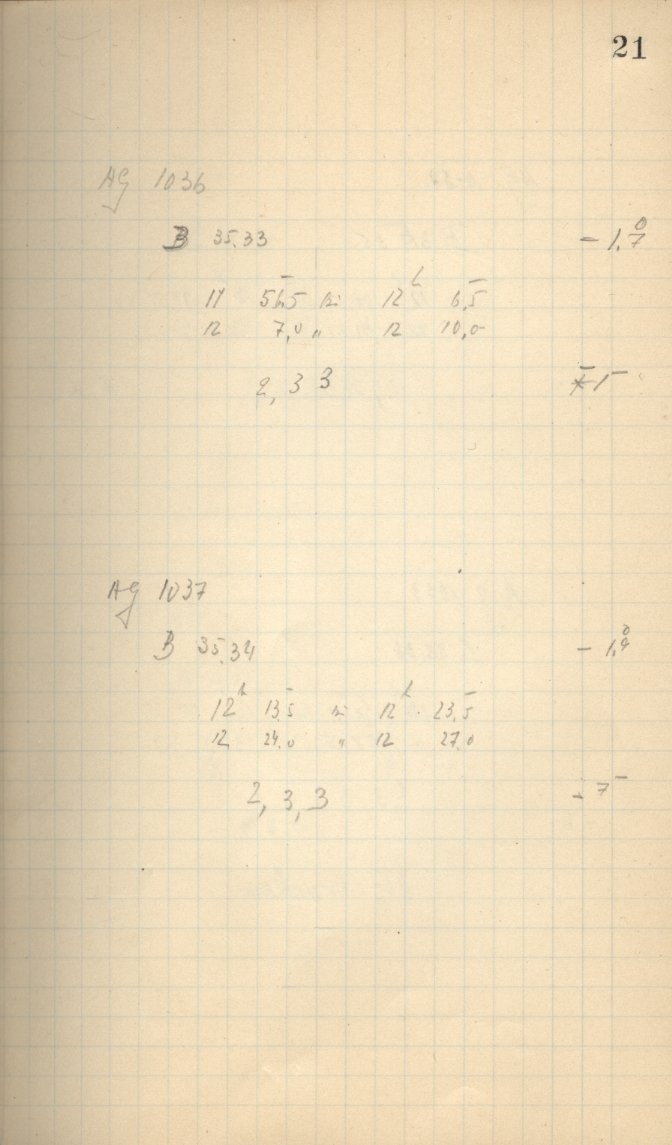 21
AG 1036
B 35.33 - 1,7°
11 56,5 bis 12h 6,5
12 7,0 " 12 10,0
2, 3 3
AG 1037
B 35.34 - 1,9°
12h 13,5 bis 12h 23,5
12 24,0 " 12 27,0
2, 3, 3 - 7